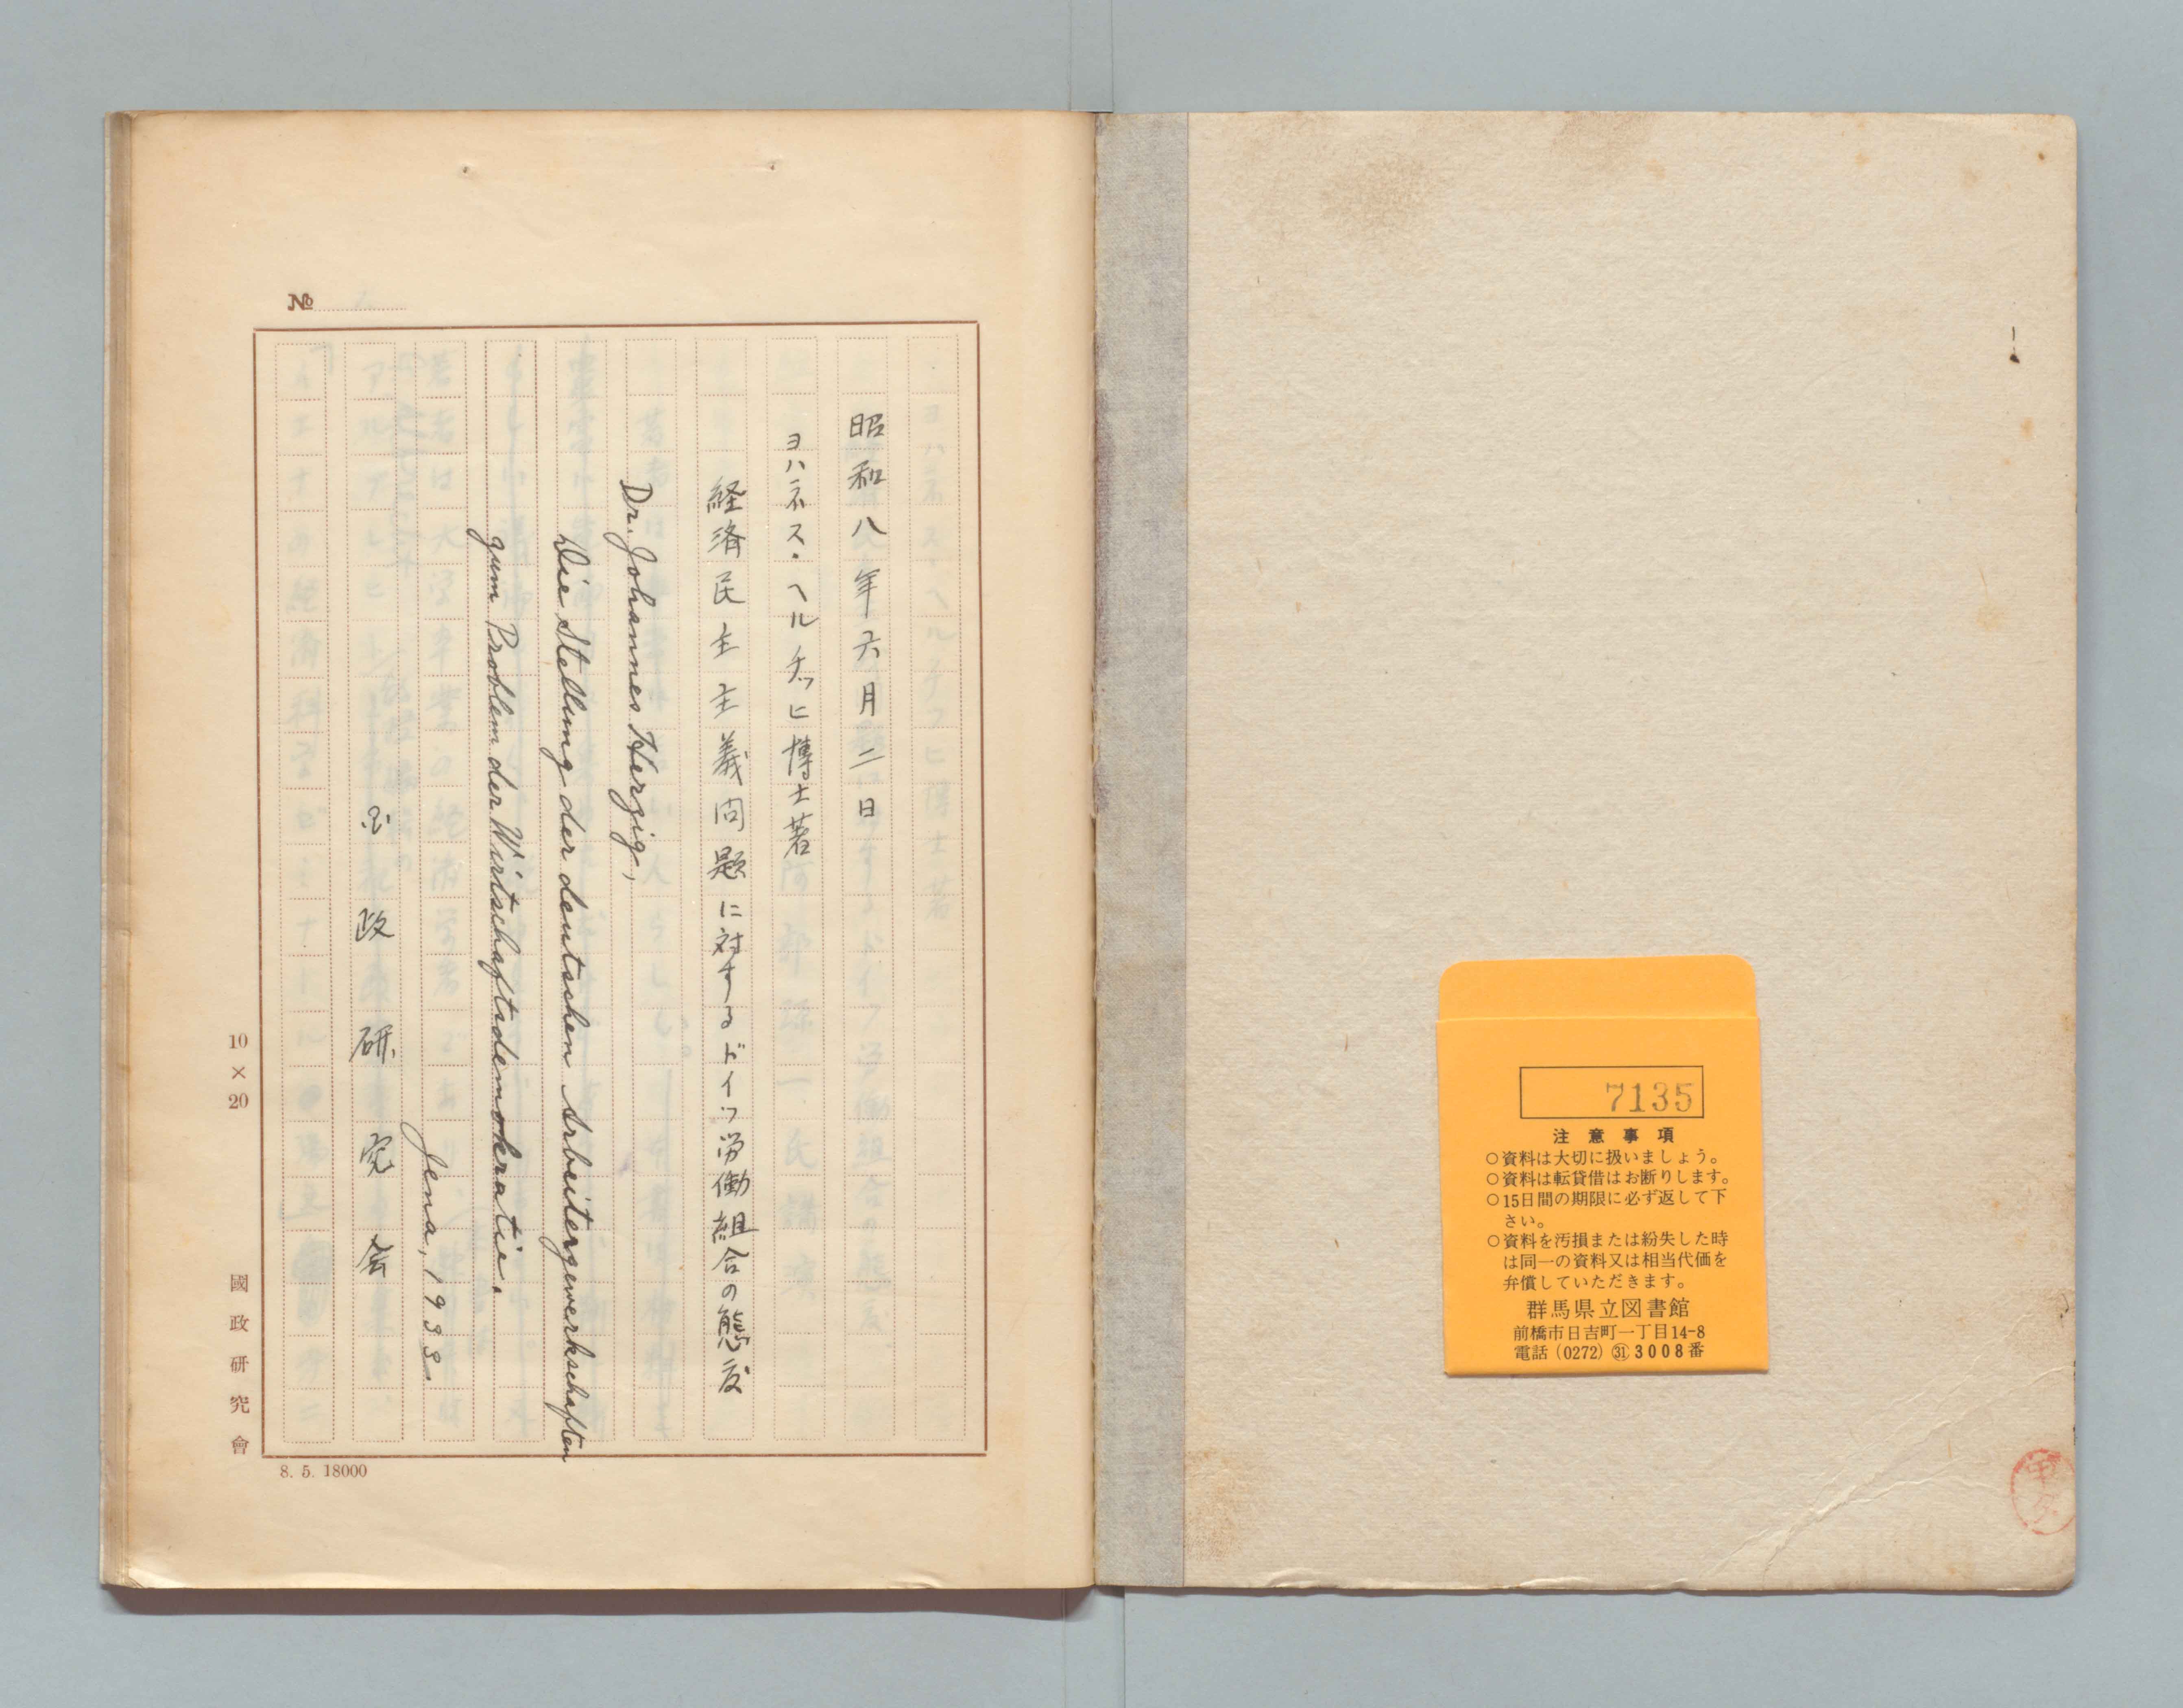 7135
注意事項
○資料は大切に扱いましょう。
○資料は転貸借はお断りします。
○15日間の期限に必ず返して下
さい。
○資料を汚損または紛失した時
は同一の資料又は相当代価を
弁償していただきます。
群馬県立図書館
前橋市日吉町一丁目14-8
電話（0272）㉛3008番
№
昭和八年六月二日
ヨハネス・ヘルチッヒ博士著
経済民主主義問題に対するドイツ労働組合の態度
Dr. Johannes Herzig,
Die Stellung der deutschen Arbeitergewerkschaften
zum Problem der Wirtschaftsdemokratie.
Jena, 1933.
政研究会
10×20
國政研究會
8. 5. 18000